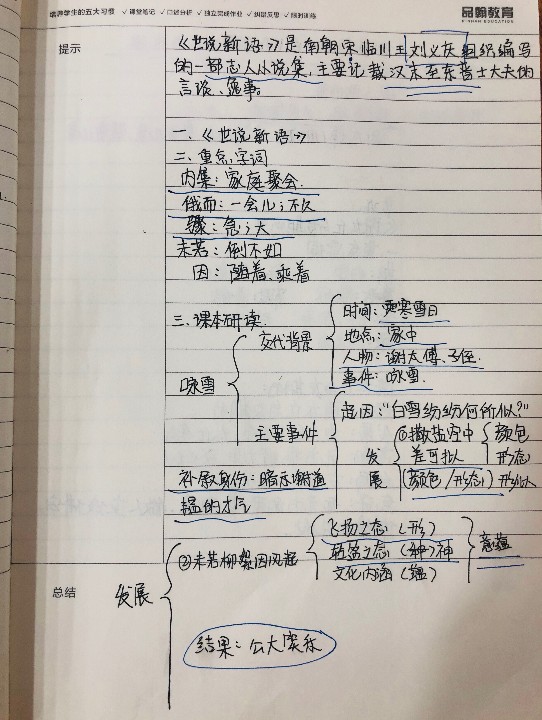 培养学生的五大习惯 ✓课堂笔记 ✓口述分析 ✓独立完成作业 ✓纠错反思 ✓限时训练
品翰教育
PINHAN EDUCATION
提示
《世说新语》是南朝宋临川王刘义庆组织编写
的一部志人小说集,主要记载汉末至东晋士大夫的
言谈、逸事。
一.《世说新语》
二.重点字词
内集:家庭聚会.
俄而:一会儿;不久
骤:急;大
未若:倒不如
因:随着、乘着
三.课本研读
咏雪
交代背景
时间:寒雪日
地点:家中
人物:谢太傅、子侄.
事件:咏雪.
主要事件
起因:"白雪纷纷何所似?"
发展
①撒盐空中
差可拟
(颜色/形态)形似
颜色
形态
补叙身份:暗示谢道
韫的才气
总结
发展
②未若柳絮因风起
飞扬之态(形)
轻盈之态(神)神
文化内涵(蕴)
意蕴
结果:公大笑乐